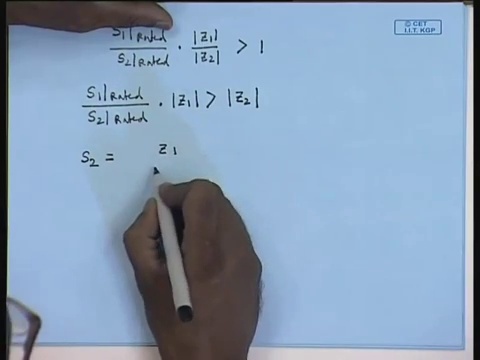 © CET
I.I.T. KGP
S₁|Rated / S₂|Rated · |Z₁| / |Z₂| > 1
S₁|Rated / S₂|Rated · |Z₁| > |Z₂|
S₂ = Z₁